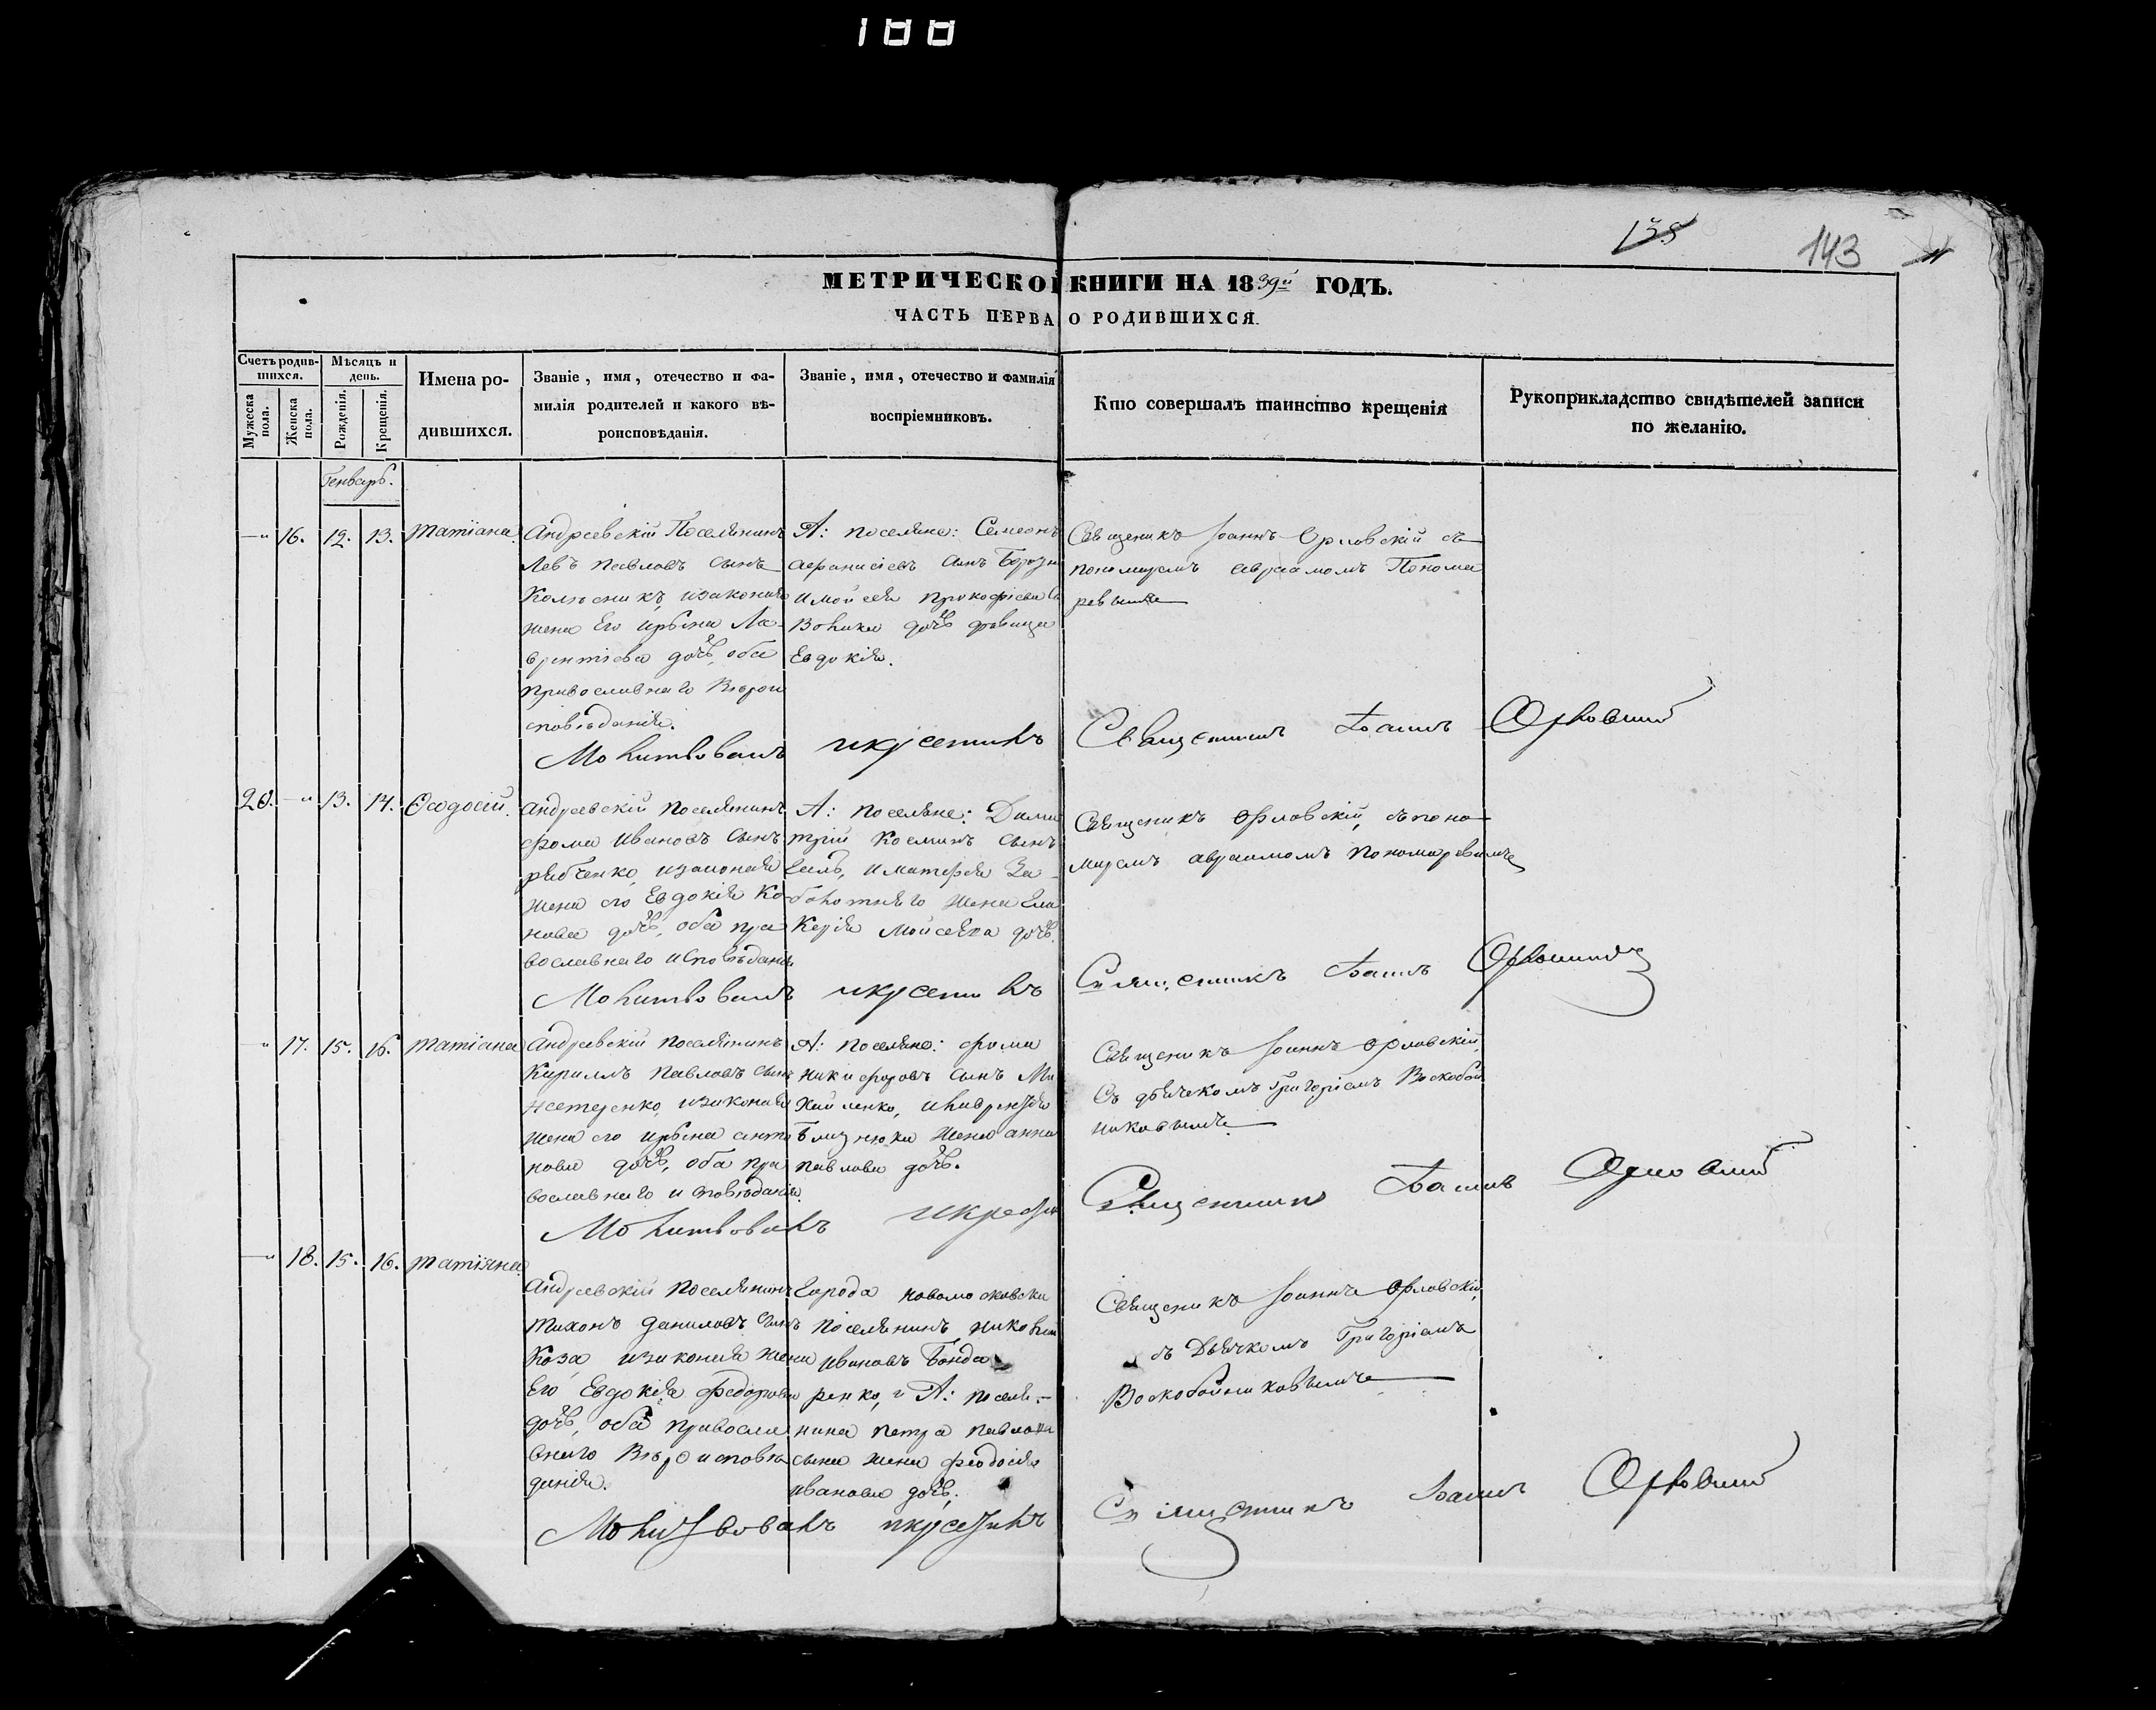 188
135
143
МЕТРИЧЕСКОЙ КНИГИ НА 1839й ГОДЪ.
ЧАСТЬ ПЕРВА О РОДИВШИХСЯ.
Счетъ родив-
шихся.
Мужеска
пола.
Женска
пола.
Мѣсяцъ и
день.
Рожденія.
Крещенія.
Имена ро-
дившихся.
Званіе, имя, отечество и фа-
милія родителей и какого вѣ-
роисповѣданія.
Званіе, имя, отечество и фамилія
воспріемниковъ.
Кто совершалъ таинство крещенія
Рукоприкладство свидѣтелей записи
по желанію.
Генварь.
—„ 16. 12. 13. Татіана.
Андреевскій Поселянинъ
Левъ Павловъ сынъ
Колѣсникъ, изаконная
жена Его Ирина Ла-
врентіева дочь, оба
православнаго Вѣрои
сповѣданія.
А: поселяне: Семеонъ
Афанасіевъ сынъ
и Мойсея Прокофіева
дочь дѣвица
Евдокія.
Священикъ Іоаннъ Орловскій съ
пономаремъ Авраамомъ Понома
ревымъ
Молитвовалъ икрестилъ Священникъ Іоаннъ Орловскій
20. —„ 13. 14. Ѳеодосій.
Андреевскій поселянинъ
Фома Ивановъ сынъ
Рябченко, изаконная
жена его Евдокія Ко-
нова дочь, оба пра
вославнаго исповѣданія
А: поселяне: Дими
трій Косминъ сынъ
и Матфея За-
болотняго жена Гли
керія Мойсеева дочь.
Священикъ Орловскій, съ поно-
маремъ Авраамомъ Пономаревымъ
Молитвовалъ икрестилъ Священикъ Іоаннъ Орловскій
„ 17. 15. 16. Татіана
Андреевскій поселянинъ
Кириллъ Павловъ сынъ
Нестеренко, изаконная
жена его Ирина Анто
нова дочь, оба пра
вославнаго исповѣданія.
А: поселяне: Фома
Никифоровъ сынъ Ми
хайленко, и Лаврентія
Близнюка жена Анна
Павлова дочь.
Священикъ Іоаннъ Орловскій,
Съ дьячкомъ Григоріемъ Воскобой
никовымъ
Молитвовалъ икрестил Священникъ Іоаннъ Орловскій
—„ 18. 15. 16. Татіяна.
Андреевскій поселянинъ
Тихонъ Даниловъ сынъ
Коза, изаконная жена
Его Евдокія Федорова
дочь, оба правосла
внаго Вѣроисповѣ
данія.
Города Новомосковска
поселянинъ
Ивановъ Бонда
ренко, и А: поселя-
нина Петра Павлова
сына жена Феодосія
Иванова дочь.
Священикъ Іоаннъ Орловскій,
съ Дьячкомъ Григоріемъ
Воскобойниковымъ
Молитвовалъ икрестилъ Священникъ Іоаннъ Орловскій